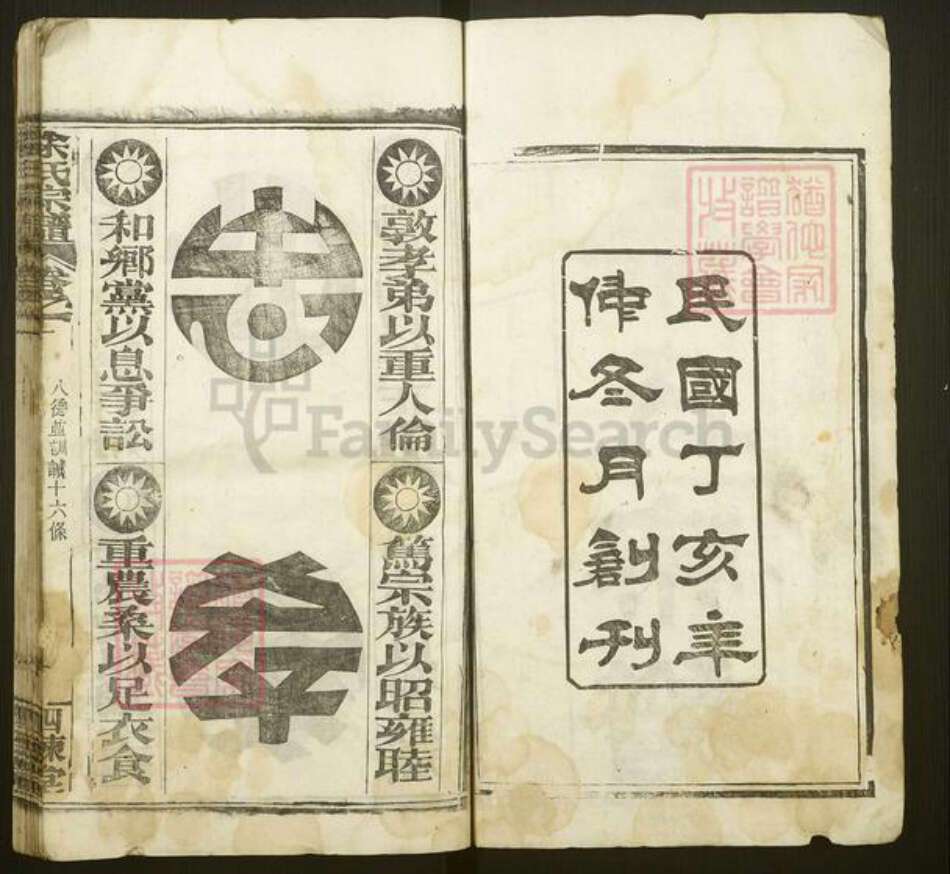 民國丁亥年
仲冬月創刊
猶他家
譜學會
收藏
敦孝弟以重人倫
篤宗族以昭雍睦
忠
孝
和鄉黨以息爭訟
重農桑以足衣食
氏宗譜
卷之
八德並訓誡十六條
FamilySearch